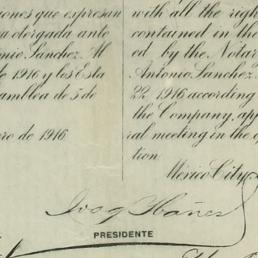 iones que expresan
a otorgada ante
onio Sanchez. Al
de 1916 y los Esta
amblea de 5 de
ero de 1916
with all the righ
contained in the
ed by the Notar
Antonio Sanchez.
22 1916 according
the Company, app
ral meeting in the
tion
Mexico City
PRESIDENTE